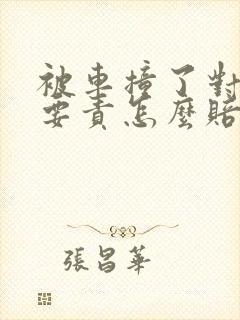 被車撞了對
要責怎麼賠
張昌華